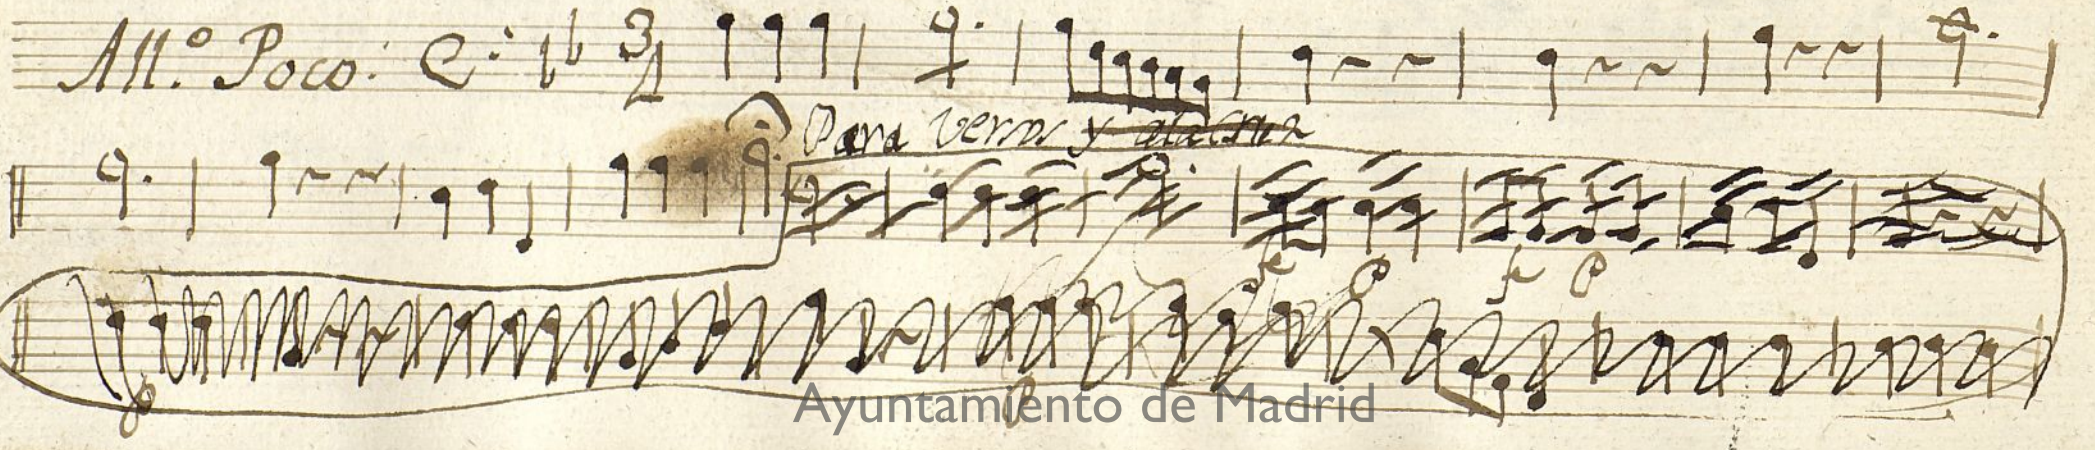 All.º Poco. 3/4
Para verso y ala Cruz
f p f p
p p
Ayuntamiento de Madrid